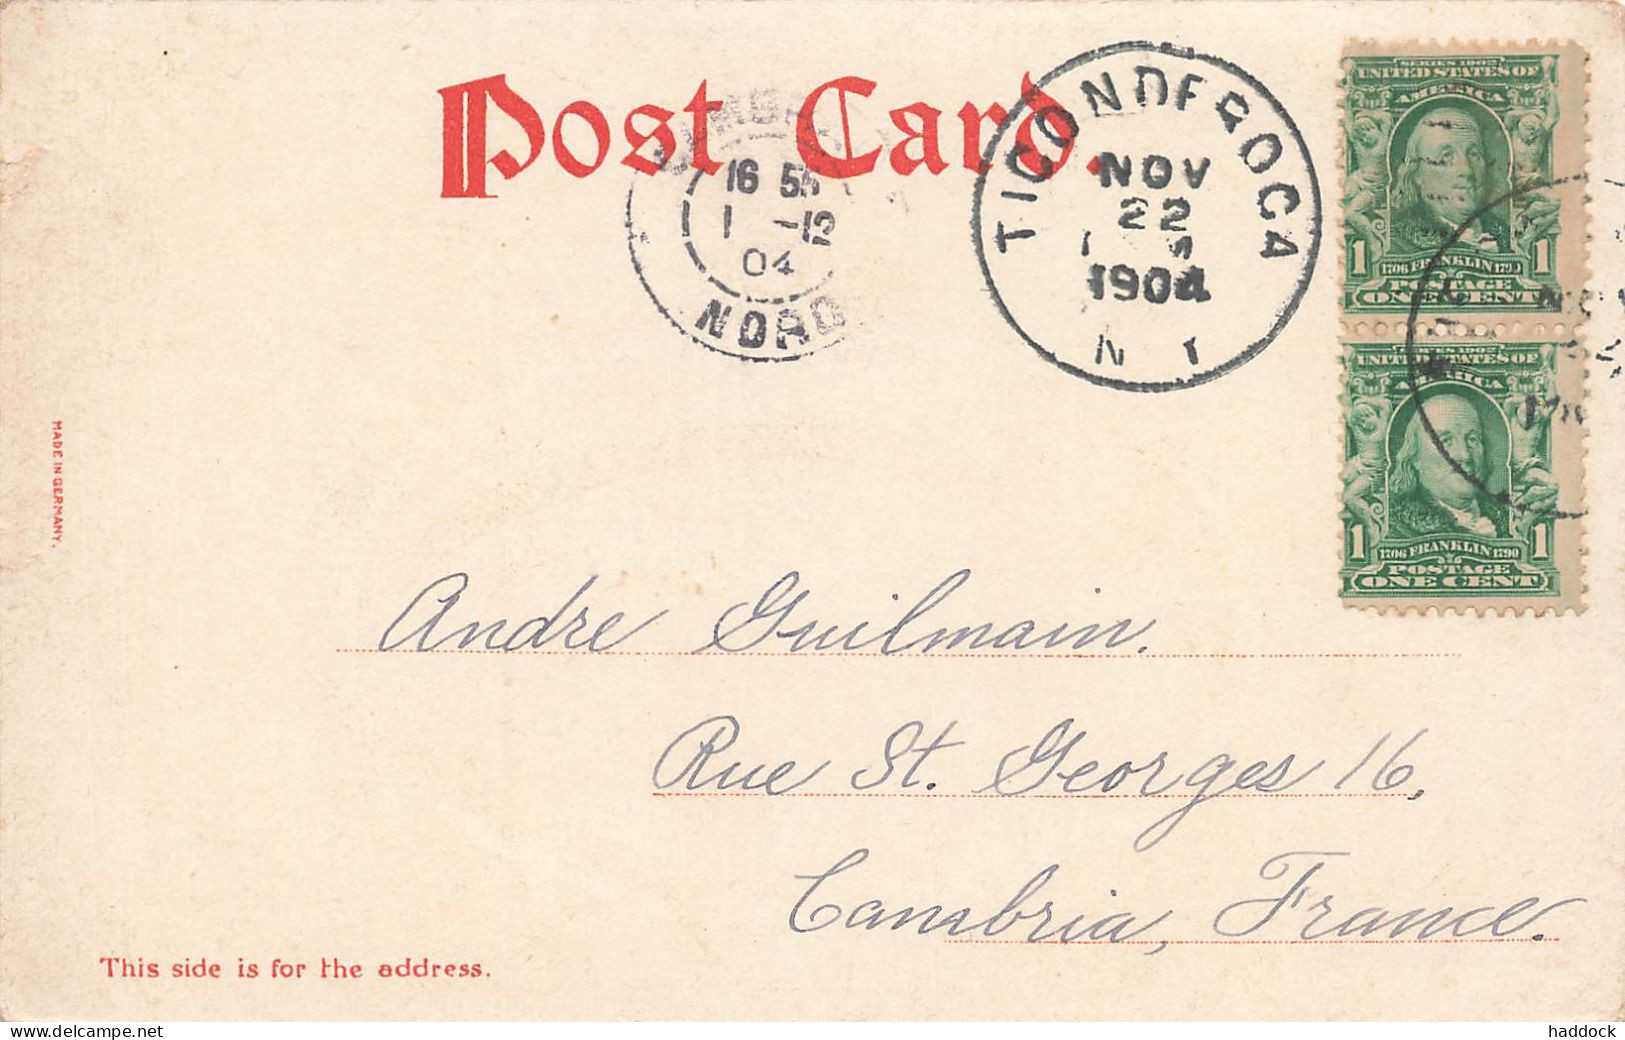 Post Card.
TICONDEROGA
NOV
22
1904
N Y
16 55
1 -
04
NORD
SERIES 1902
UNITED STATES OF
AMERICA
1 1
1706 FRANKLIN 1790
POSTAGE
ONE CENT
SERIES 1902
UNITED STATES OF
AMERICA
1 1
1706 FRANKLIN 1790
POSTAGE
ONE CENT
MADE IN GERMANY.
Andre Guilmain.
Rue St. Georges 16,
Cambria, France.
This side is for the address.
delcampe.net
haddock